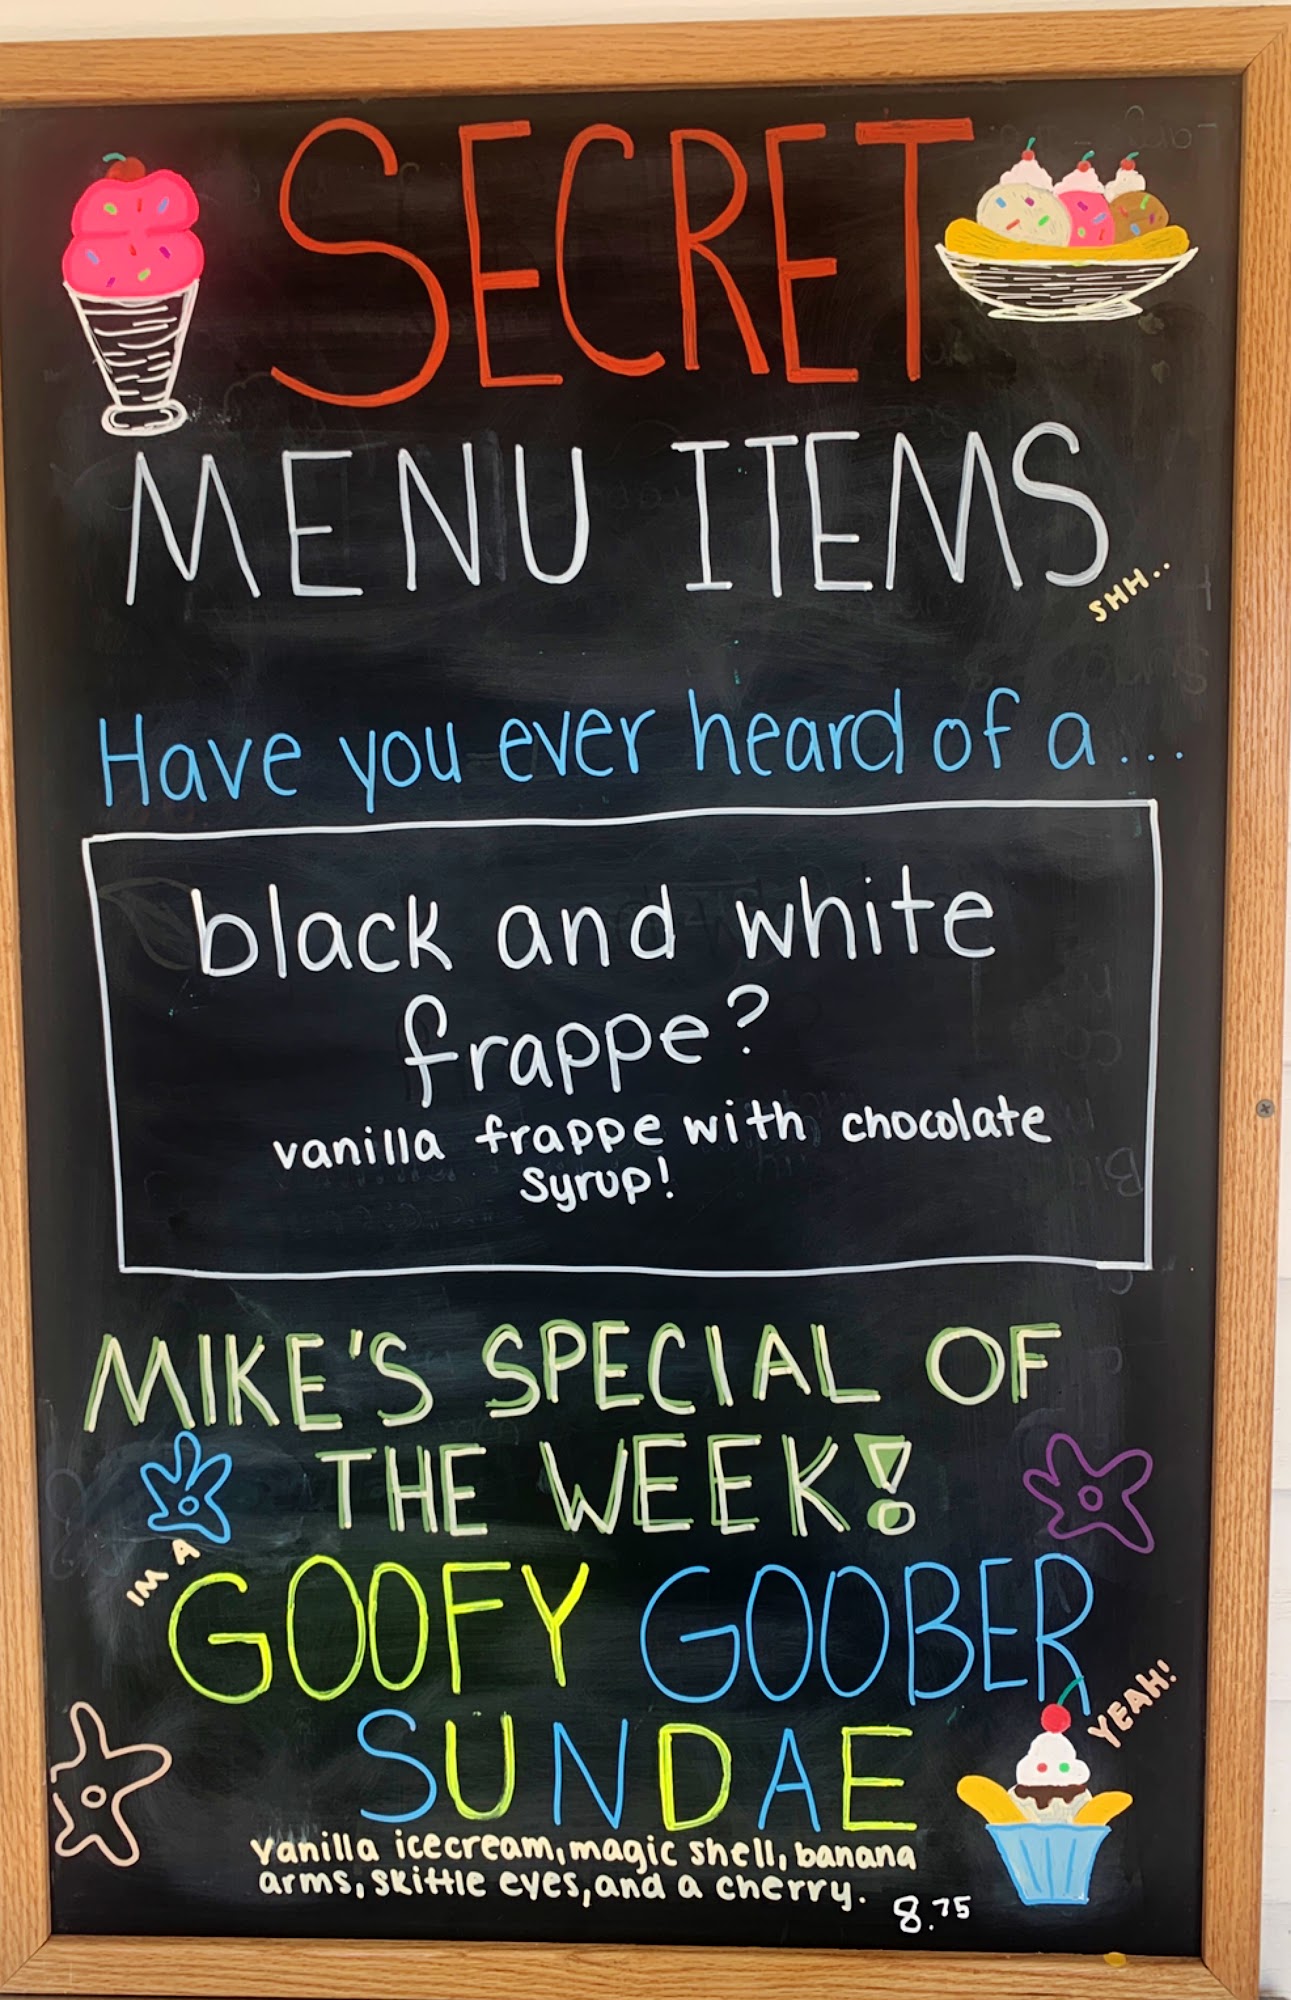 SECRET
MENU ITEMS
SHH..
Have you ever heard of a...
black and white
frappe?
vanilla frappe with chocolate
syrup!
MIKE'S SPECIAL OF
THE WEEK!
IM A
GOOFY GOOBER
YEAH!
SUNDAE
vanilla icecream, magic shell, banana
arms, skittle eyes, and a cherry.
8.75